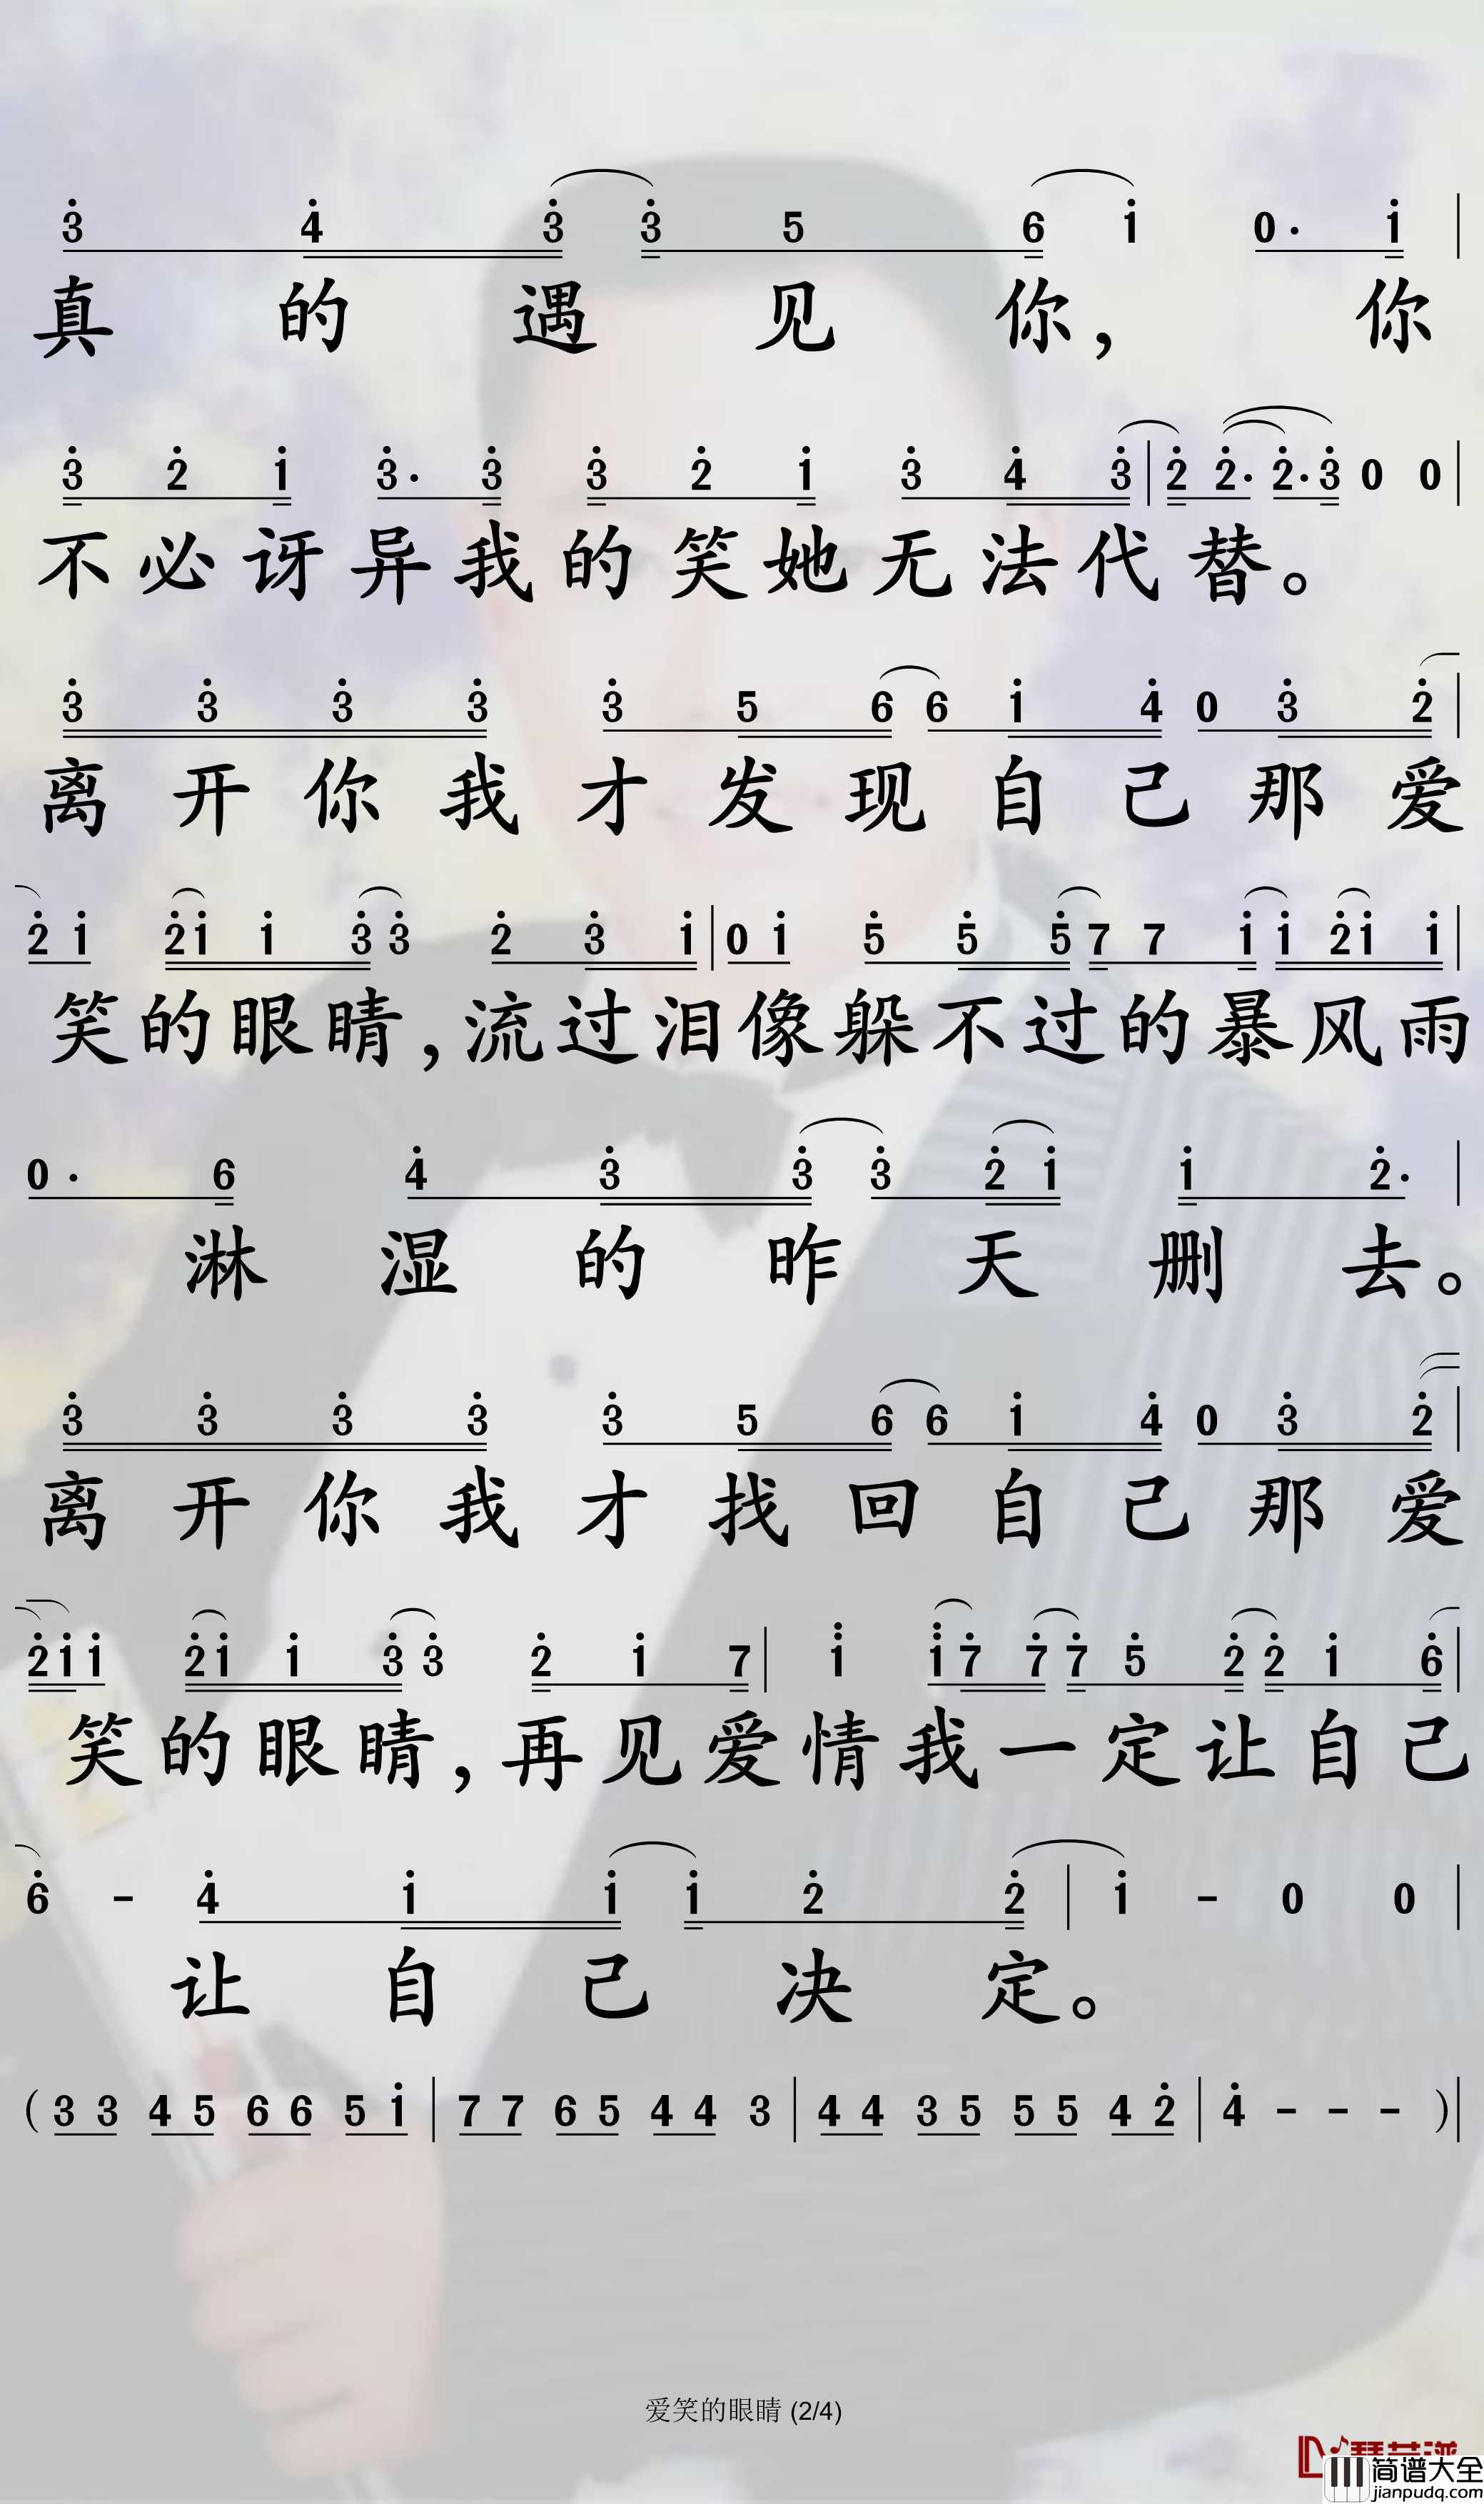 3̇ 4̇ 3̇ 3̇ 5 6 1̇ 0· 1̇ |
真的遇见你，你
3̇ 2̇ 1̇ 3̇· 3̇ 3̇ 2̇ 1̇ 3̇ 4̇ 3̇ | 2̇ 2̇· 2̇· 3̇ 0 0 |
不必讶异我的笑她无法代替。
3̇ 3̇ 3̇ 3̇ 3̇ 5 6 6 1̇ 4̇ 0 3̇ 2̇ |
离开你我才发现自己那爱
2̇ 1̇ 2̇ 1̇ 1̇ 3̇ 3̇ 2̇ 3̇ 1̇ | 0 1̇ 5̇ 5̇ 5̇ 7 7 1̇ 1̇ 2̇ 1̇ 1̇ |
笑的眼睛，流过泪像躲不过的暴风雨
0· 6 4̇ 3̇ 3̇ 3̇ 2̇ 1̇ 1̇ 2̇· |
淋湿的昨天删去。
3̇ 3̇ 3̇ 3̇ 3̇ 5 6 6 1̇ 4̇ 0 3̇ 2̇ |
离开你我才找回自己那爱
2̇ 1̇ 1̇ 2̇ 1̇ 1̇ 3̇ 3̇ 2̇ 1̇ 7 | 1̈ 1̈ 7̇ 7̇ 7̇ 5̇ 2̇ 2̇ 1̇ 6̇ |
笑的眼睛，再见爱情我一定让自己
6̇ - 4̇ 1̇ 1̇ 1̇ 2̇ 2̇ | 1̇ - 0 0 |
让自己决定。
( 3 3 4 5 6 6 5 1̇ | 7 7 6 5 4 4 3 | 4 4 3 5 5 5 4 2̇ | 4̇ - - - ) |
爱笑的眼睛 (2/4)
简谱大全
jianpudq.com